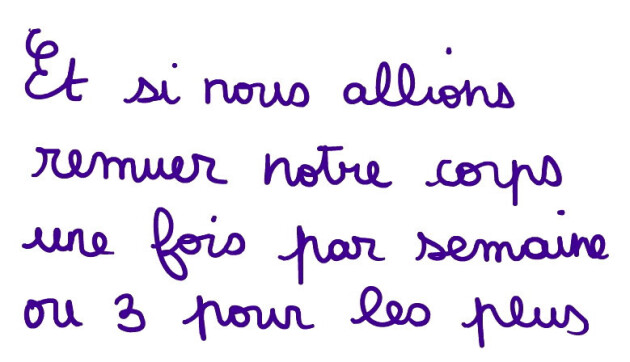 Et si nous allions
remuer notre corps
une fois par semaine
ou 3 pour les plus